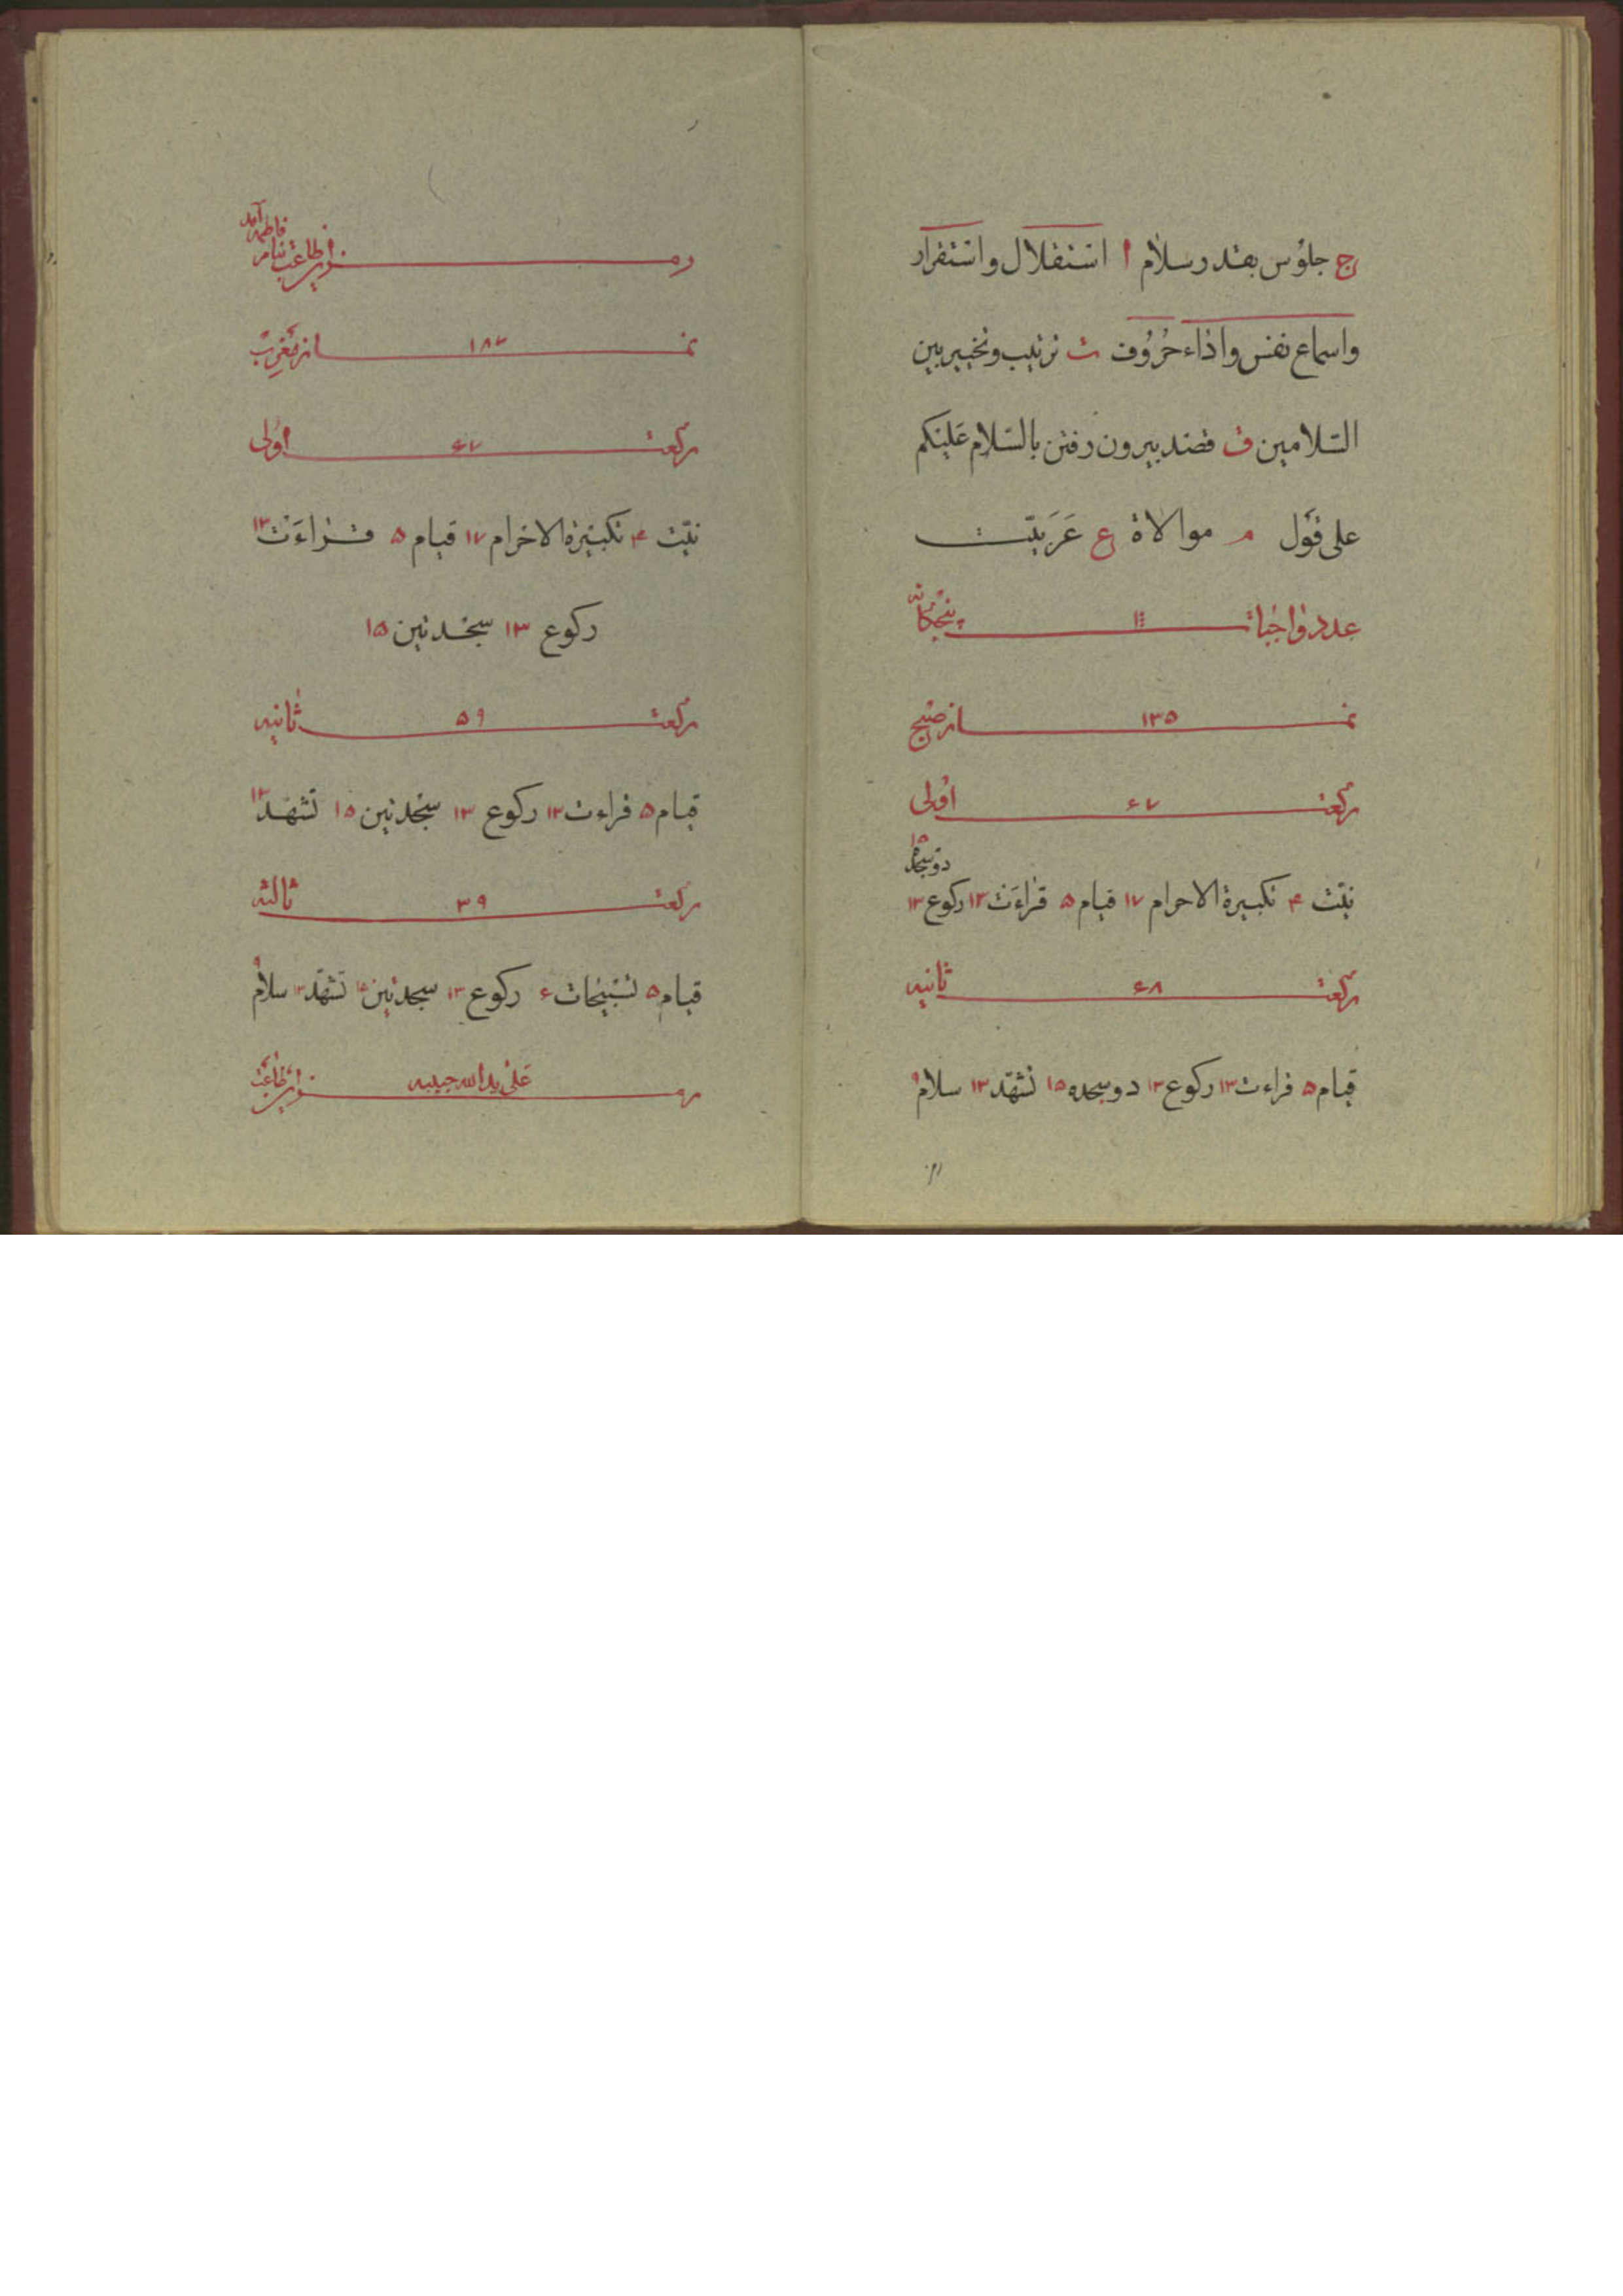 ج جلوس بقدر سلام ا استقلال و استقرار
و اسماع نفس و اداء حروف ت ترتیب و تخییر بین
السّلامین ق قصد بیرون رفتن بالسّلام علیکم
علی قول م موالاة ع عَرَبیّت
عدد واجبات پنجگانه
نماز صبح ۱۳۵
رکعت ۶۷ اولی
نیّت ۴ تکبیرة الاحرام ۱۷ قیام ۵ قراءت ۱۳ رکوع ۱۳ دو سجده ۱۵
رکعت ۶۸ ثانیه
قیام ۵ قراءت ۱۳ رکوع ۱۳ دو سجده ۱۵ تشهّد ۱۳ سلام ۹
رمز این طاعت بنام فاطمه آمد
نماز مغرب
رکعت ۶۷ اولی
نیّت ۴ تکبیرة الاحرام ۱۷ قیام ۵ قراءَت ۱۳
رکوع ۱۳ سجدتین ۱۵
رکعت ۵۹ ثانیه
قیام ۵ قراءت ۱۳ رکوع ۱۳ سجدتین ۱۵ تشهّد ۱۳
رکعت ثالثه
قیام ۵ تسبیحات ۶ رکوع ۱۳ سجدتین ۱۵ تشهّد ۱۳ سلام ۹
رمز این طاعت